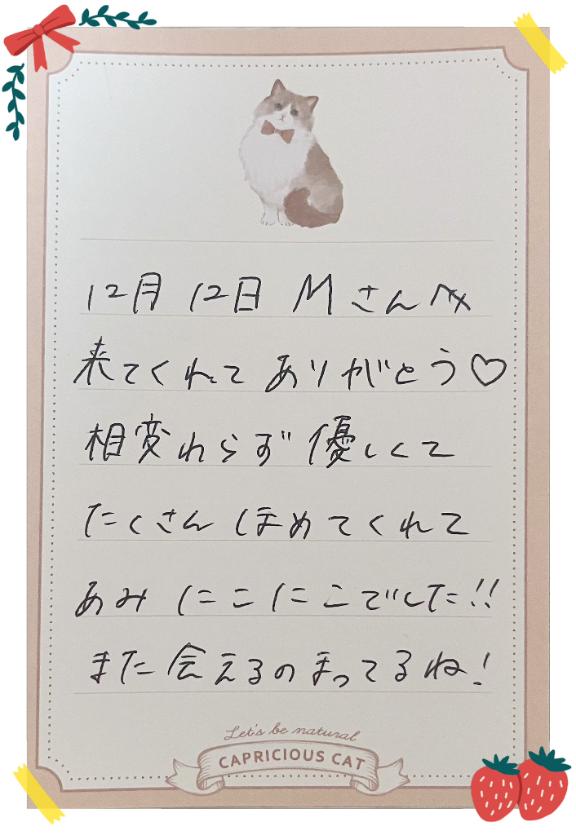 12月12日 Mさんへ
来てくれてありがとう♡
相変わらず優しくて
たくさんほめてくれて
あみにこにこでした!!
また会えるのまってるね!
Let's be natural
CAPRICIOUS CAT